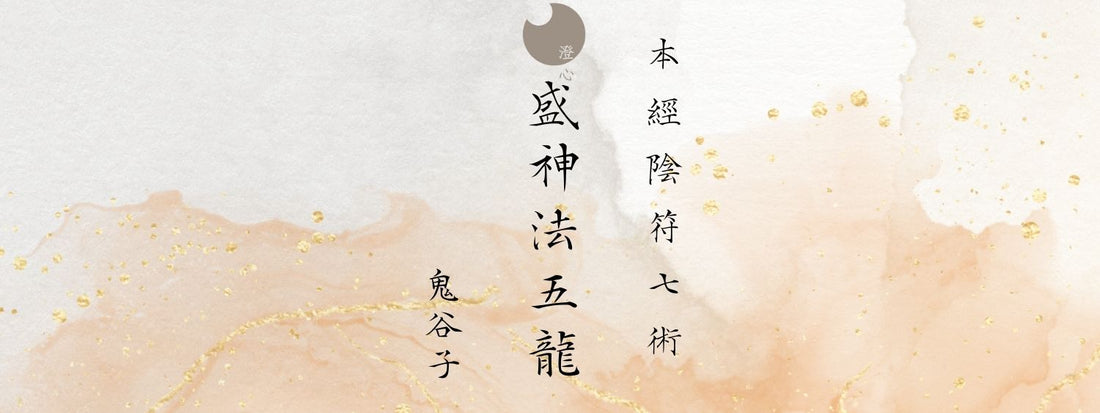 本經陰符七術
盛神法五龍
鬼谷子
澄心